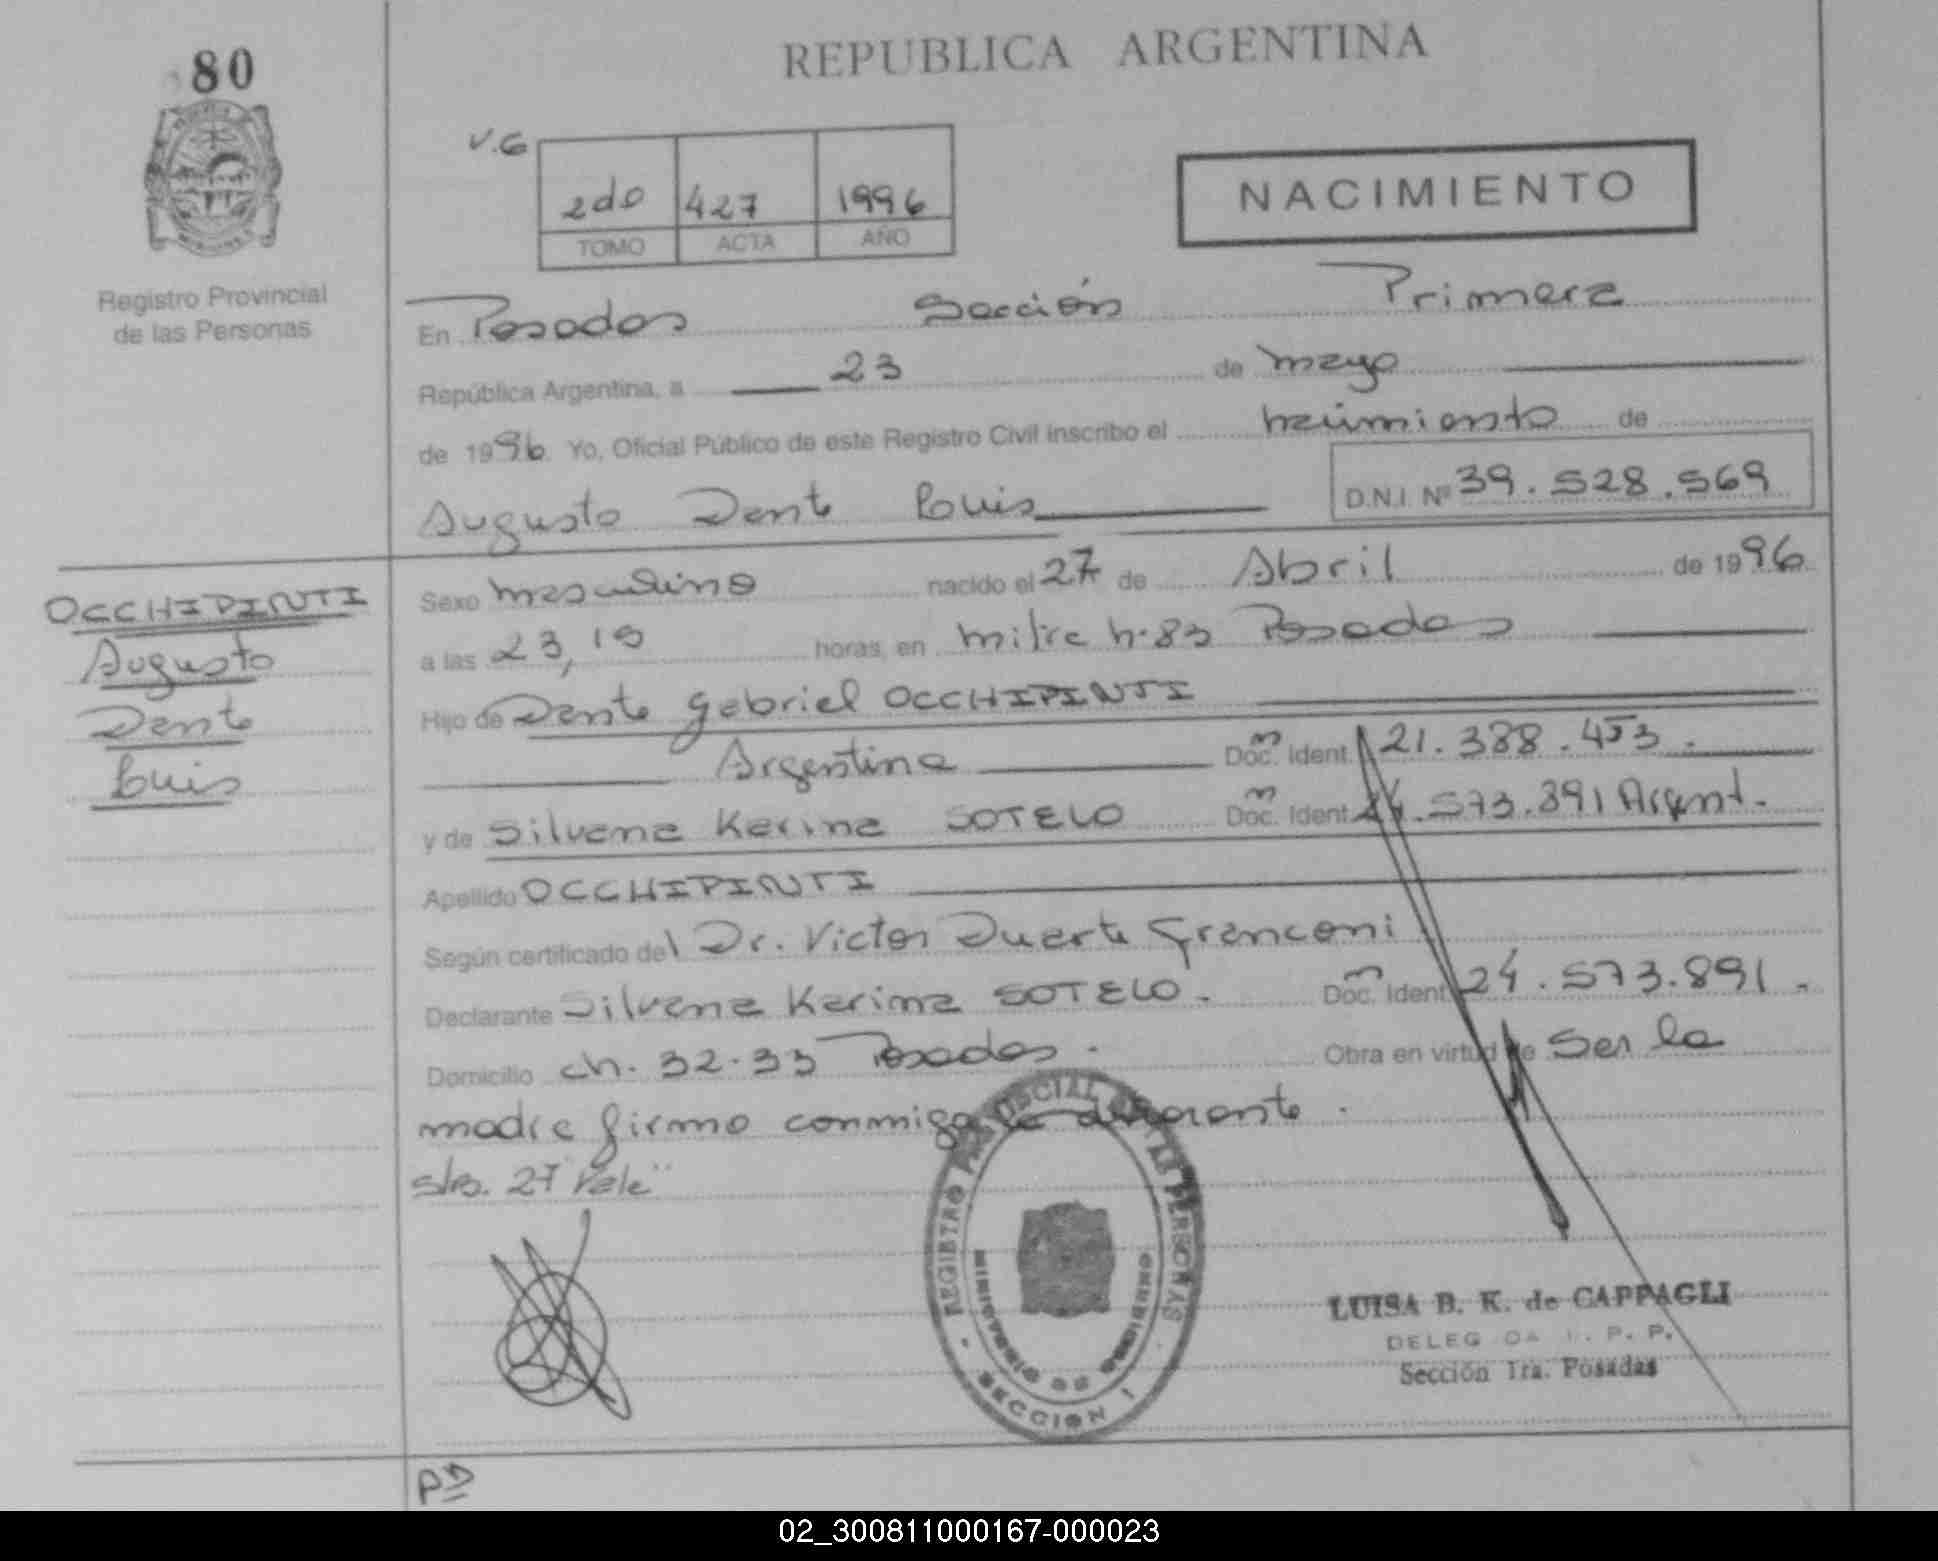 80
REPUBLICA ARGENTINA
V.6
2do 427 1996
TOMO ACTA AÑO
NACIMIENTO
Registro Provincial
de las Personas
En Posadas Sección Primera
República Argentina, a 23 de mayo
de 1996. Yo, Oficial Público de este Registro Civil inscribo el nacimiento de
Augusto Dante Luis D.N.I. Nº 39.528.569
OCCHIPINTI
Augusto
Dante
Luis
Sexo masculino nacido el 27 de Abril de 1996
a las 23,15 horas, en mitre n.83 Posadas
Hijo de Dante Gabriel OCCHIPINTI
Argentina Doc. Ident. 21.388.453.
y de Silvana Karina SOTELO Doc. Ident. 24.573.891 Argent.
Apellido OCCHIPINTI
Según certificado del Dr. Victor Duarte Granconi
Declarante Silvana Karina SOTELO. Doc. Ident. 24.573.891.
Domicilio ch. 32-33 Posadas. Obra en virtud de Ser la
madre firmo conmigo la
27 Vale"
REGISTRO PROVINCIAL DE LAS PERSONAS
MINISTERIO DE GOBIERNO
SECCION 1
LUISA B. K. de CAPPAGLI
DELEG DA R. P. P.
Sección 1ra. Posadas
02_300811000167-000023